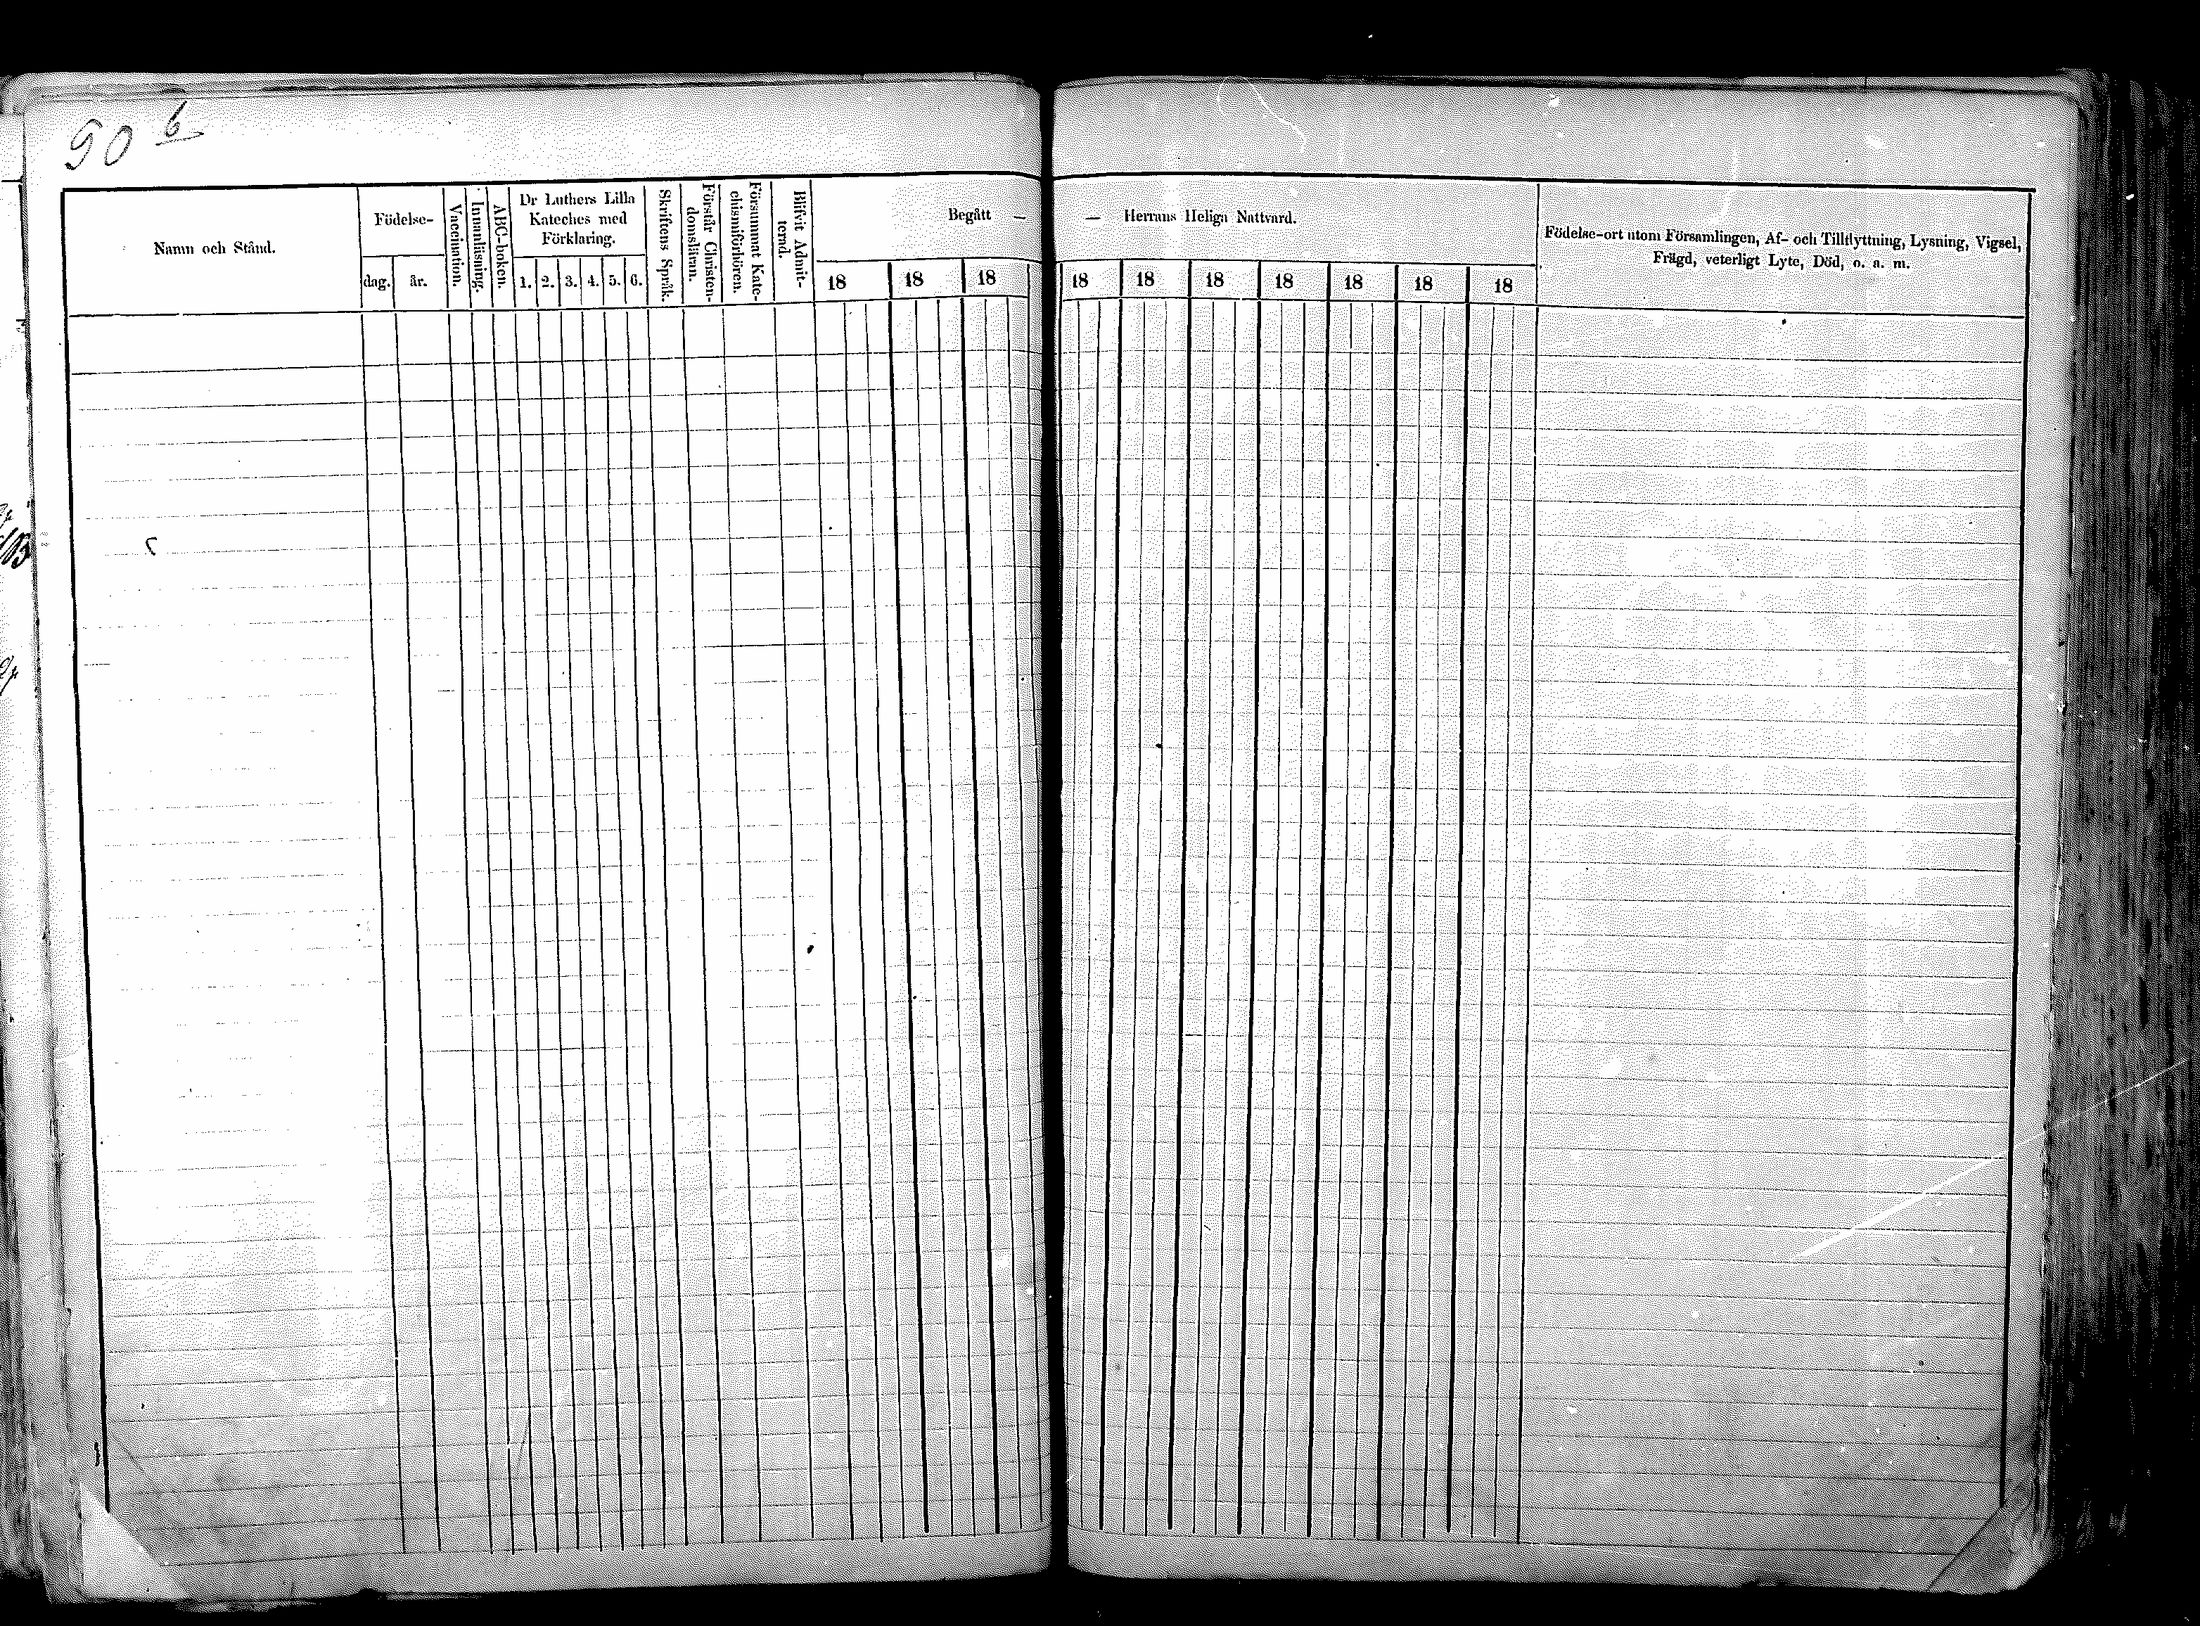 90 b
Namn och Stånd.
Födelse-
dag.
år.
Vaccination.
Innanläsning.
ABC-boken.
Dr Luthers Lilla
Kateches med
Förklaring.
1. 2. 3. 4. 5. 6.
Skriftens Språk.
Förstår Christen-
domsläran.
Försummat Kate-
chismiförhören.
Blifvit Admit-
terad.
Begått —
18 18 18
— Herrans Heliga Nattvard.
18 18 18 18 18 18 18
Födelse-ort utom Församlingen, Af- och Tillflyttning, Lysning, Vigsel,
Frägd, veterligt Lyte, Död, o. s. m.